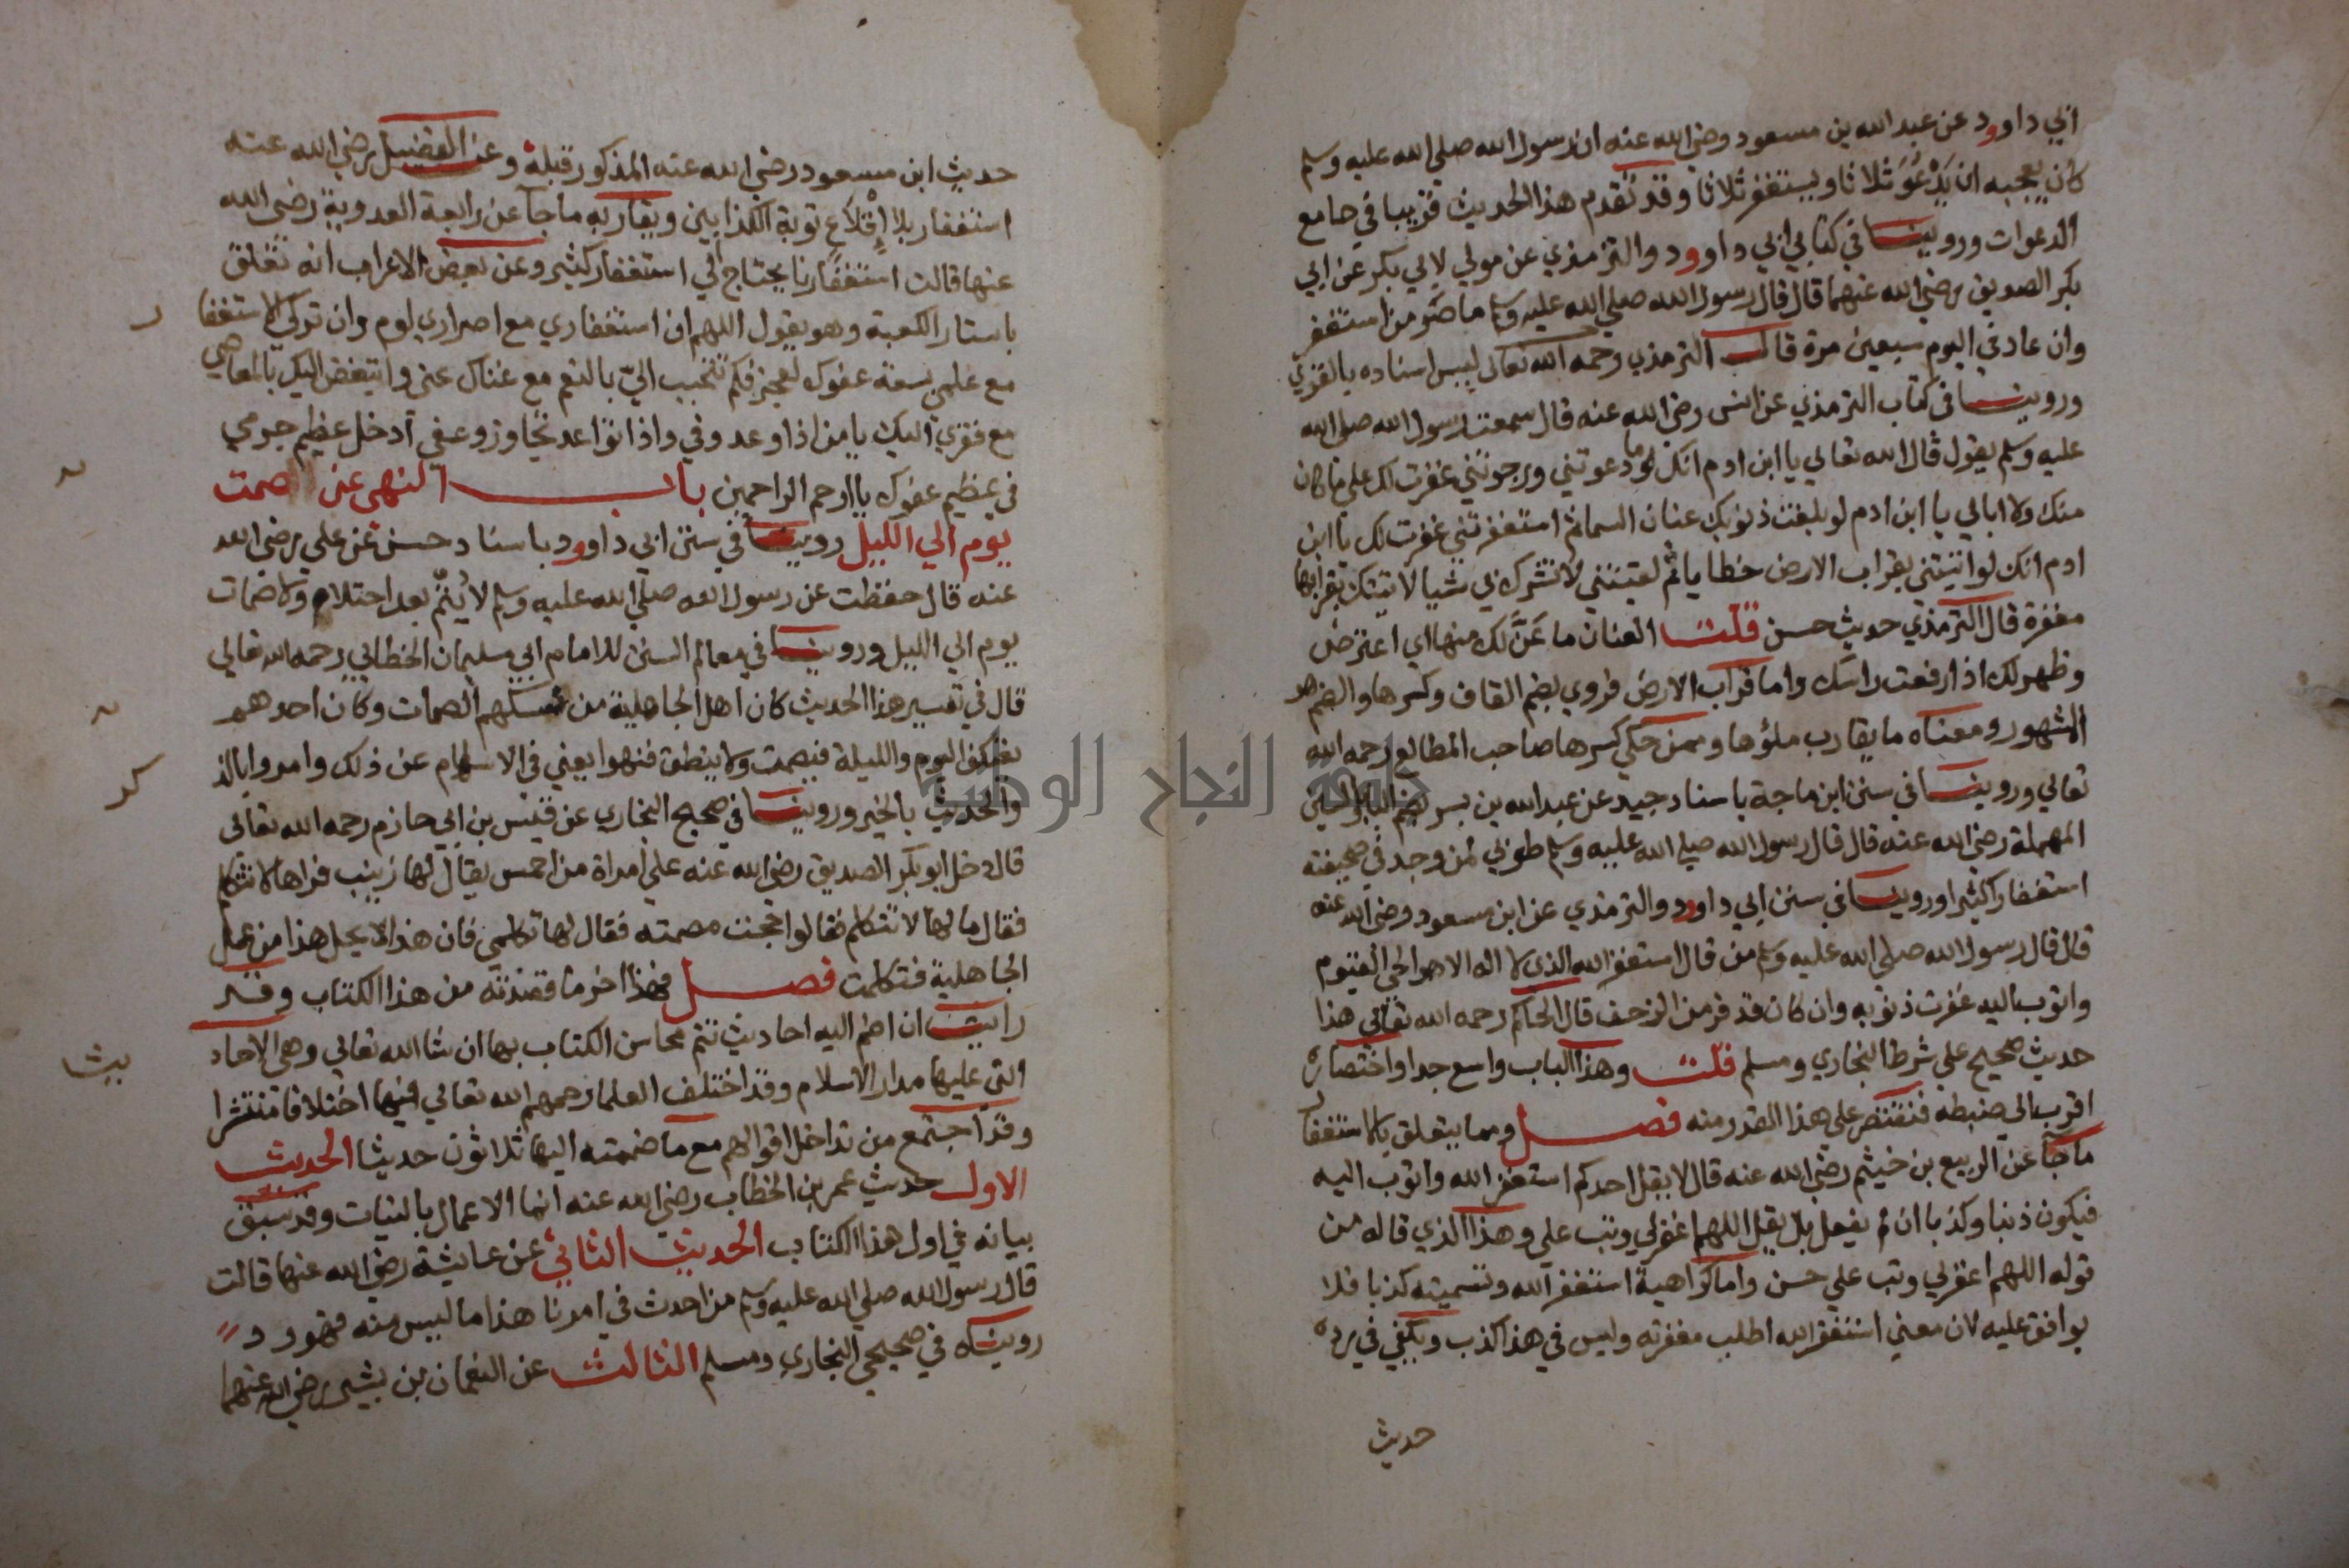 ابي داوود عن عبد الله بن مسعود رضي الله عنه ان رسول الله صلي الله عليه وسلم
كان يعجبه ان يَدْعُوَ ثلاثا ويستغفر ثلاثا وقد تقدم هذا الحديث قريبا في جامع
الدعوات وروينا في كتابي ابي داوود والترمذي عن مولي لابي بكر عن ابي
بكر الصديق رضي الله عنهما قال قال رسول الله صلي الله عليه وسلم ما اصر من استغفر
وان عاد في اليوم سبعين مرة قال الترمذي رحمه الله تعالى ليس اسناده بالقوي
وروينا في كتاب الترمذي عن انس رضي الله عنه قال سمعت رسول الله صلي الله
عليه وسلم يقول قال الله تعالي يا ابن ادم انك ما دعوتني ورجوتني غفرت لك علي ما كان
منك ولا ابالي يا ابن ادم لو بلغت ذنوبك عنان السما ثم استغفرتني غفرت لك يا ابن
ادم انك لو اتيتني بقراب الارض خطايا ثم لقيتني لا تشرك بي شيا لاتيتك بقرابها
مغفرة قال الترمذي حديث حسن قلت العنان ما عَنَّ لك منها اي اعترض
وظهر لك اذا رفعت راسك واما قراب الارض فروي بضم القاف وكسرها والضم هو
المشهور ومعناه ما يقارب ملؤها وممن حكي كسرها صاحب المطالع رحمه الله
تعالي وروينا في سنن ابن ماجة باسناد جيد عن عبد الله بن بسر بضم البا وبالسين
المهملة رضي الله عنه قال قال رسول الله صلي الله عليه وسلم طوبي لمن وجد في صحيفته
استغفارا كثيرا وروينا في سنن ابي داوود والترمذي عن ابن مسعود رضي الله عنه
قال قال رسول الله صلي الله عليه وسلم من قال استغفر الله الذي لا اله الا هو الحي القيوم
واتوب اليه غفرت ذنوبه وان كان قد فر من الزحف قال الحاكم رحمه الله تعالي هذا
حديث صحيح علي شرط البخاري ومسلم قلت وهذا الباب واسع جدا واختصاره
اقرب الى ضبطه فنقتصر علي هذا القدر منه فصل ومما يتعلق بالاستغفار
ما جآ عن الربيع بن خيثم رضي الله عنه قال لا يقل احدكم استغفر الله واتوب اليه
فيكون ذنبا وكذبا ان لم يفعل بل يقل اللهم اغفر لي وتب علي وهذا الذي قاله من
قوله اللهم اغفر لي وتب علي حسن واما كراهية استغفر الله وتسميته كذبا فلا
يوافق عليه لان معني استغفر الله اطلب مغفرته وليس في هذا كذب ويكفي في رده
حديث
حديث ابن مسعود رضي الله عنه المذكور قبله وعن الفضيل رضي الله عنه
استغفار بلا إقْلَاعٍ توبة الكذابين ويقاربه ما جآ عن رابعة العدوية رضي الله
عنها قالت استغفارنا يحتاج الي استغفار كثير وعن بعض الاعراب انه تعلق
باستار الكعبة وهو يقول اللهم ان استغفاري مع اصراري لوم وان تركي الاستغفار
مع علمي بسعة عفوك لعجز فكم تتحبب اليّ بالنعم مع غناك عني واتبغض اليك بالمعاصي
مع فقري اليك يا من اذا وعد وفي واذا تواعد تجاوز وعفي ادخل عظيم جرمي
في عظيم عفوك يا ارحم الراحمين باب النهي عن صمت
يوم الي الليل روينا في سنن ابي داوود باسناد حسن عن علي رضي الله
عنه قال حفظت عن رسول الله صلي الله عليه وسلم لا يُتْمَ بعد احتلام ولا صمات
يوم الي الليل وروينا في معالم السنن للامام ابي سليمان الخطابي رحمه الله تعالي
قال في تفسير هذا الحديث كان اهل الجاهلية من نسكهم الصمات وكان احدهم
يعتكف اليوم والليلة فيصمت ولا ينطق فنهوا يعني في الاسلام عن ذلك وامروا بالذكر
والحديث بالخير وروينا في صحيح البخاري عن قيس بن ابي حازم رحمه الله تعالى
قال دخل ابو بكر الصديق رضي الله عنه علي امراة من احمس يقال لها زينب فراها لا تتكلم
فقال ما لها لا تتكلم فقالوا حجت مصمتة فقال لها تكلمي فان هذا لا يحل هذا من عمل
الجاهلية فتكلمت فصل فهذا اخر ما قصدته من هذا الكتاب وقد
رايت ان اضم اليه احاديث تتم محاسن الكتاب بها ان شا الله تعالي وهي الاحاديث
التي عليها مدار الاسلام وقد اختلف العلما رحمهم الله تعالي فيها اختلافا منتشرا
وقد اجتمع من تداخل اقوالهم مع ما ضممته اليها ثلاثون حديثا الحديث
الاول حديث عمر بن الخطاب رضي الله عنه انما الاعمال بالنيات وقد سبق
بيانه في اول هذا الكتاب الحديث الثاني عن عايشة رضي الله عنها قالت
قال رسول الله صلي الله عليه وسلم من احدث في امرنا هذا ما ليس منه فهو رد
رويناه في صحيحي البخاري ومسلم الثالث عن النعمان بن بشير رضي الله عنهما
جامعة النجاح الوطنية